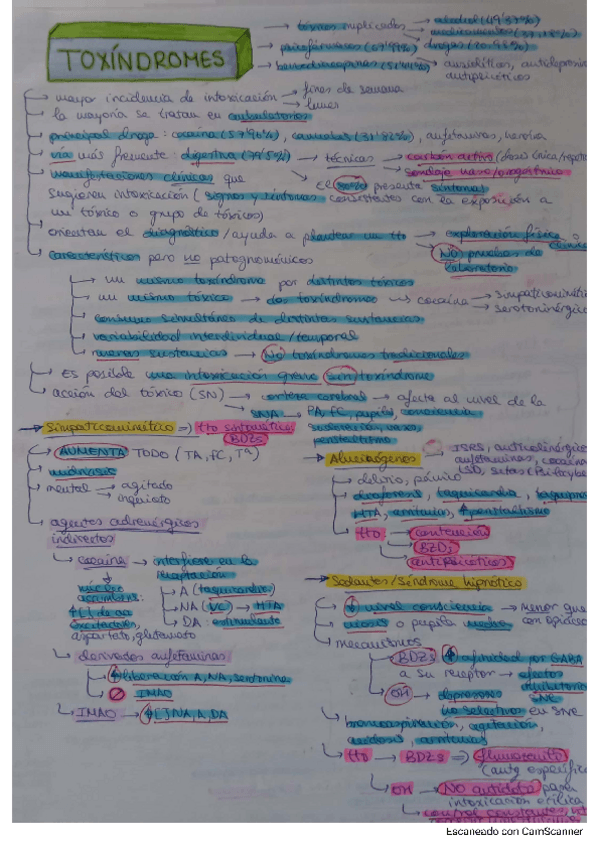 TOXÍNDROMES
→ tóxicos implicados → alcohol (49'37%)
→ medicamentos (37,18%)
→ psicofármacos (67'99%) → drogas (20'98%)
→ benzodiacepinas (51'44%) → ansiolíticos, antidepresivos
antipsicóticos
→ mayor incidencia de intoxicación → fines de semana
→ lunes
→ la mayoría se tratan en ambulatorios
→ principal droga: cocaína (57'96%), cannabis (31'82%), anfetaminas, heroína
→ vía más frecuente: digestiva (79'5%) → técnicas → carbón activo (dosis única/repet
→ sondaje naso/orogástrico
→ manifestaciones clínicas que → El 80% presenta síntomas
sugieren intoxicación (signos y síntomas consistentes con la exposición a
un tóxico o grupo de tóxicos)
→ orientan el diagnóstico/ayuda a plantear un tto → exploración física o clínica
→ NO pruebas de
laboratorio
→ característicos pero no patognoménicos
→ un mismo toxíndrome por distintos tóxicos
→ un mismo tóxico → dos toxíndromes → cocaína → simpaticomiméti
→ serotoninérgic
→ consumo simultáneo de distintas sustancias
→ variabilidad interindividual/temporal
→ nuevas sustancias → NO toxíndromes tradicionales
→ Es posible una intoxicación grave sin toxíndrome
→ acción del tóxico (SN) → corteza cerebral → afecta al nivel de la
→ SNA → PA, FC, pupilas, consciencia
sudoración, vasos,
peristaltismo
→ Simpaticomimético → tto sintomático
BDZs
→ AUMENTA TODO (TA, FC, Tª)
→ midriasis
→ mental → agitado
→ inquieto
→ agentes adrenérgicos
indirectos
→ cocaína → interfiere en la
recaptación
núcleo
accumbens:
↑[] de aa
excitadores,
aspartato, glutamato
→ A (taquicardia)
→ NA (VC) → HTA
→ DA: estimulante
→ derivados anfetaminas
→ ↑ liberación A, NA, serotonina
→ IMAO
→ IMAO → ↑[] NA, A, DA
Alucinógenos
ISRS, anticolinérgicos
anfetaminas, cocaína
LSD, setas (psilocybe
→ delirio, pánico
→ diaforesis, taquicardia, taquipnea
HTA, arritmias, ↑peristaltismo
→ tto → contención
→ BZDs
→ antipsicóticos
→ Sedantes/Síndrome hipnótico
→ ↓ nivel consciencia → menor que
con opiáceos
→ miosis o pupila media
→ mecanismos
→ BDZs ↑ afinidad por GABA
a su receptor → efectos
inhibitorios
SNC
→ OH → depresores
no selectivo en SNC
→ broncoaspiración, agitación,
acidosis, arritmias
→ tto → BDZs → flumazenilo
(antg específico
→ OH → NO antídoto para
intoxicación etílica
→ control constantes,
Escaneado con CamScanner